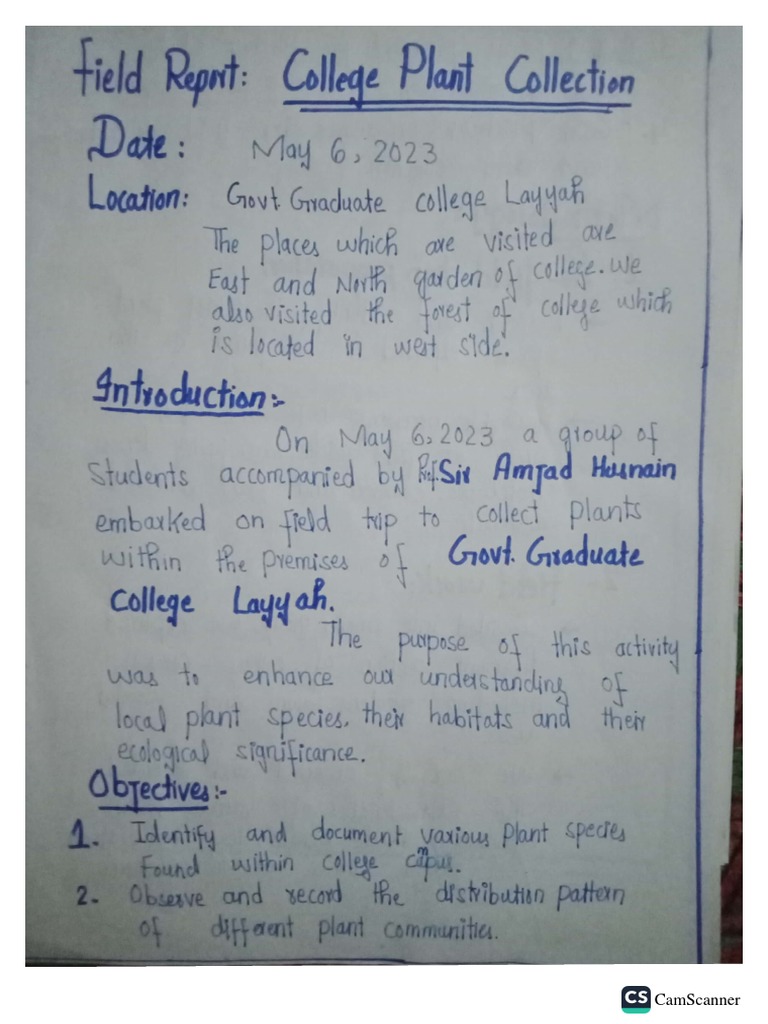 Field Report: College Plant Collection
Date: May 6, 2023
Location: Govt. Graduate college Layyah
The places which are visited are
East and North garden of college. we
also visited the forest of college which
is located in west side.
Introduction:-
On May 6, 2023 a group of
Students accompanied by Prof. Sir Amjad Husnain
embarked on field trip to collect plants
within the premises of Govt. Graduate
College Layyah.
The purpose of this activity
was to enhance our understanding of
local plant species, their habitats and their
ecological significance.
Objectives:-
1. Identify and document various plant species
Found within college campus.
2. Observe and record the distribution pattern
of different plant communities.
CS CamScanner